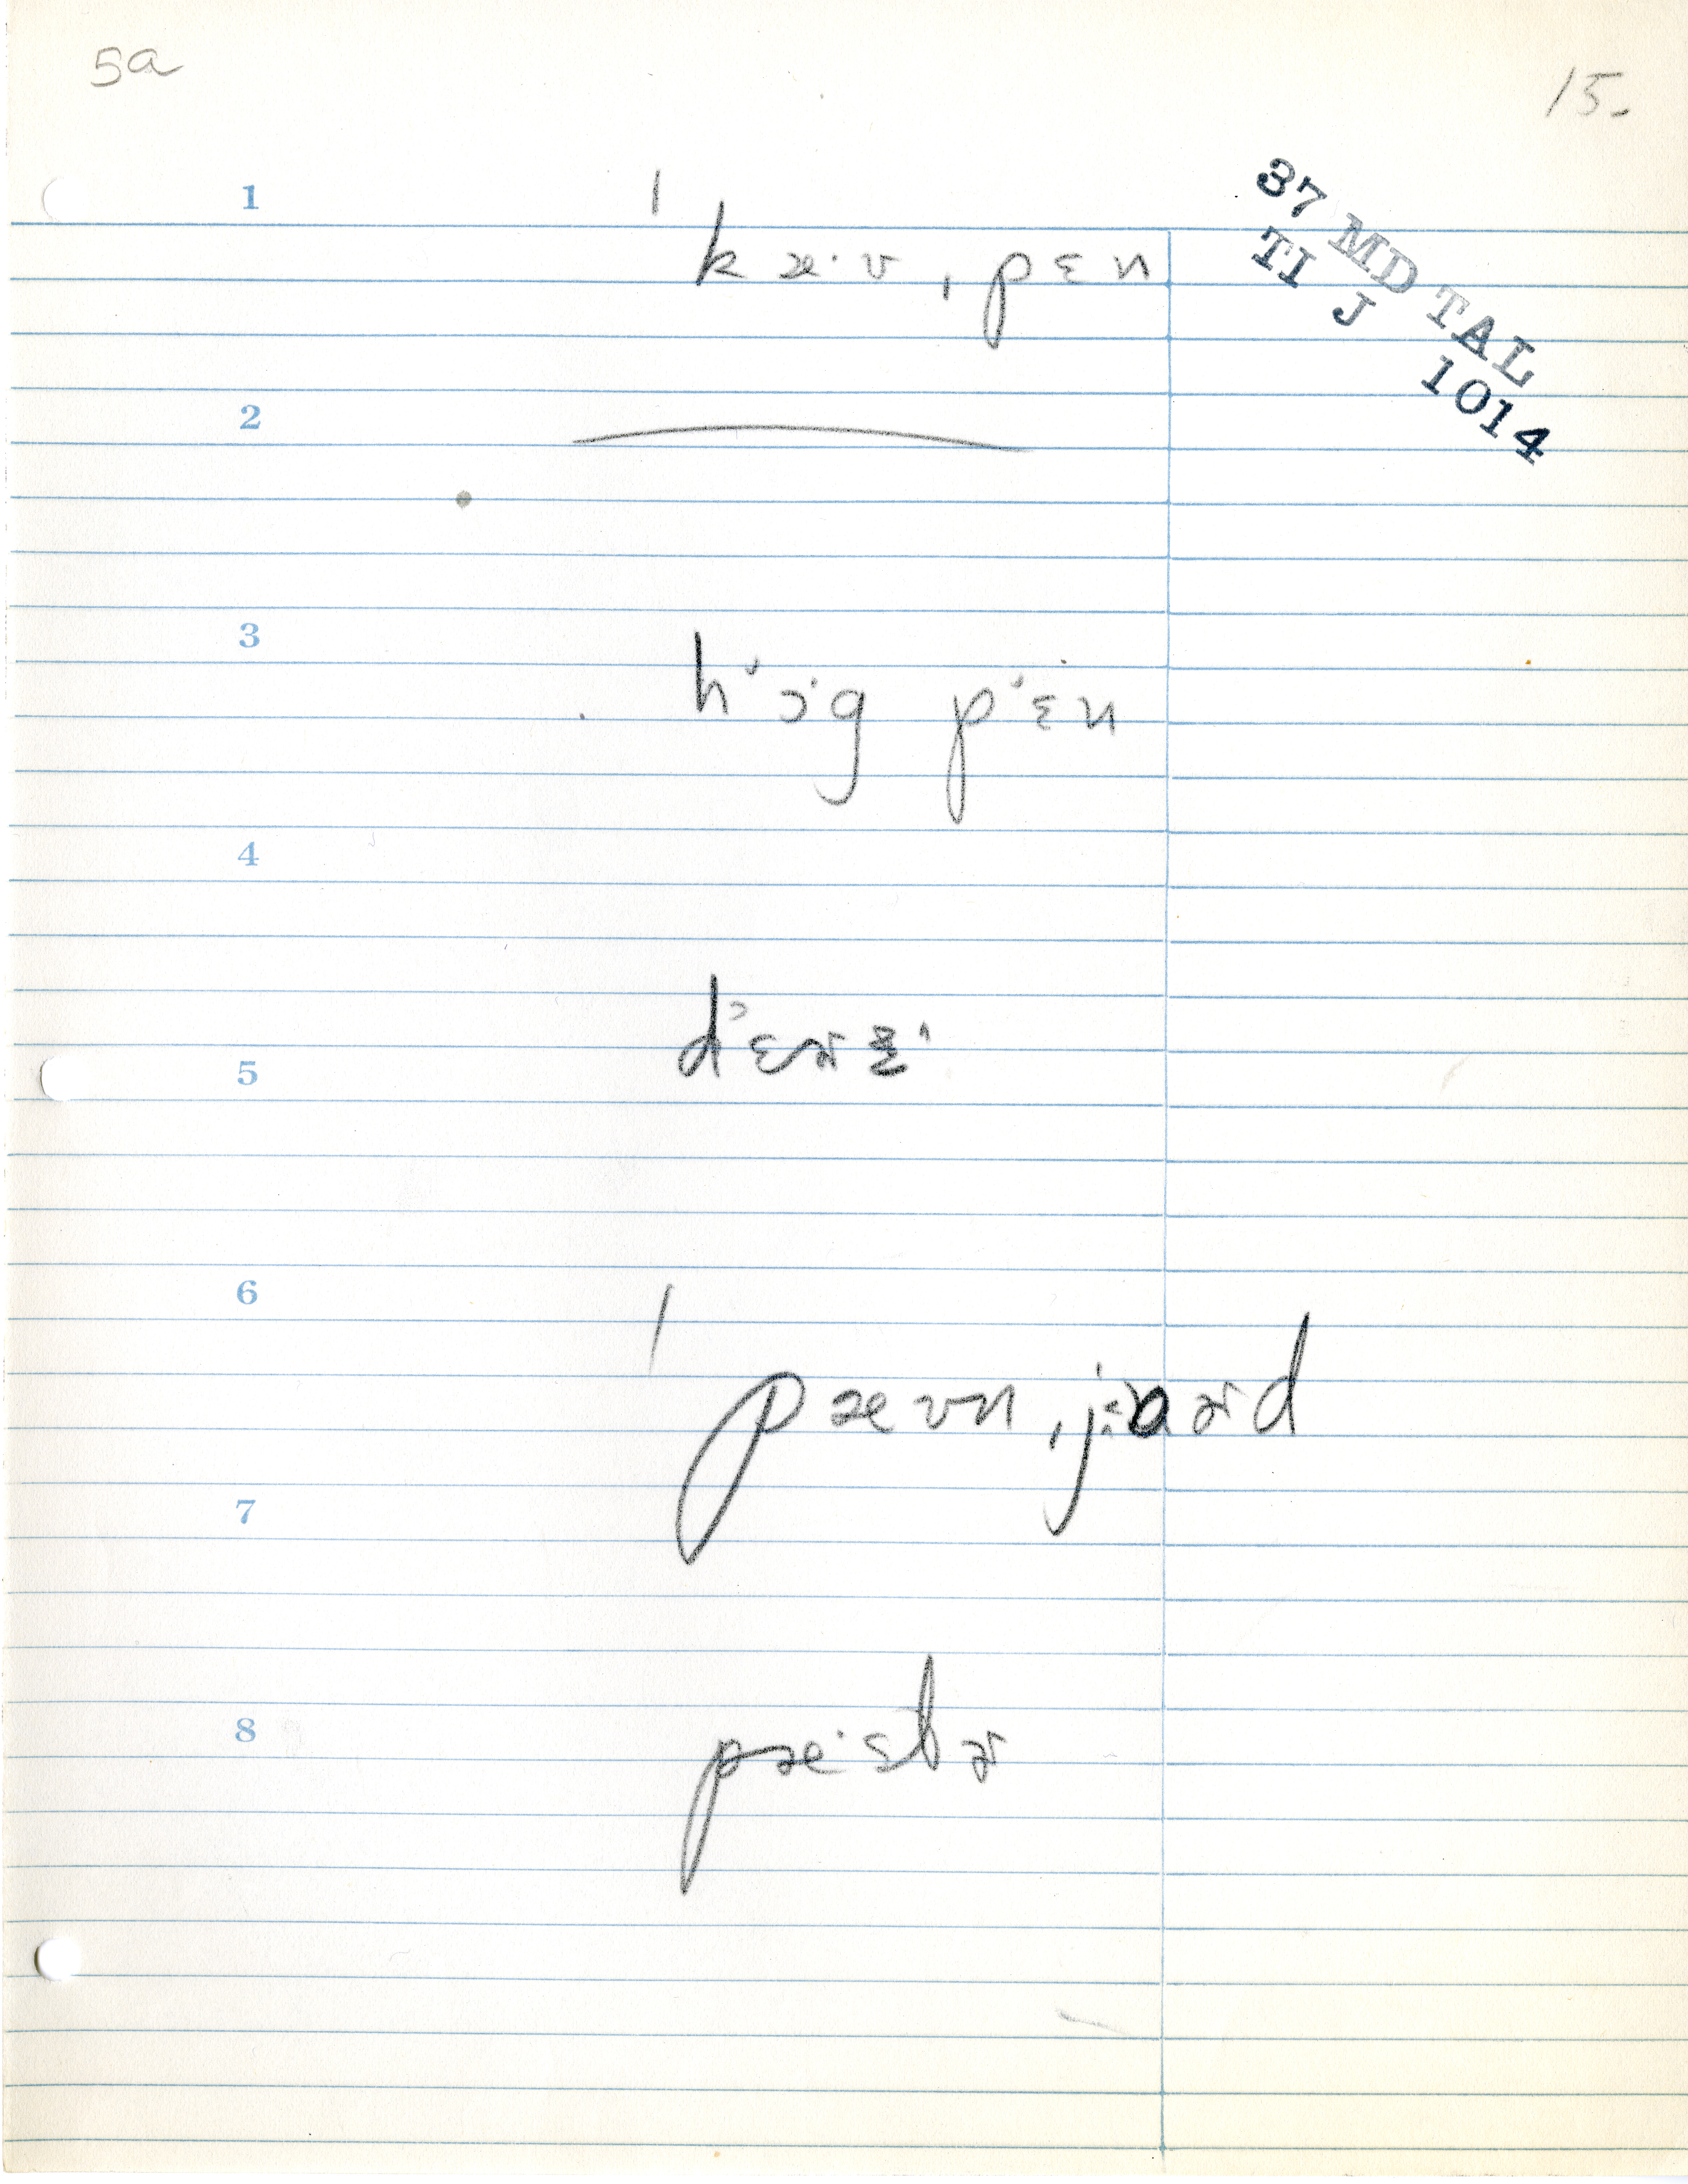 5a
15.
37 MD TAL
TI J 1014
1
ˈkæ·v ˌpɛn
2
3
hɔ·g pɛn
4
dɛɚɨ
5
6
ˈpævn ˌjɑɚd
7
8
pæ·stɚ